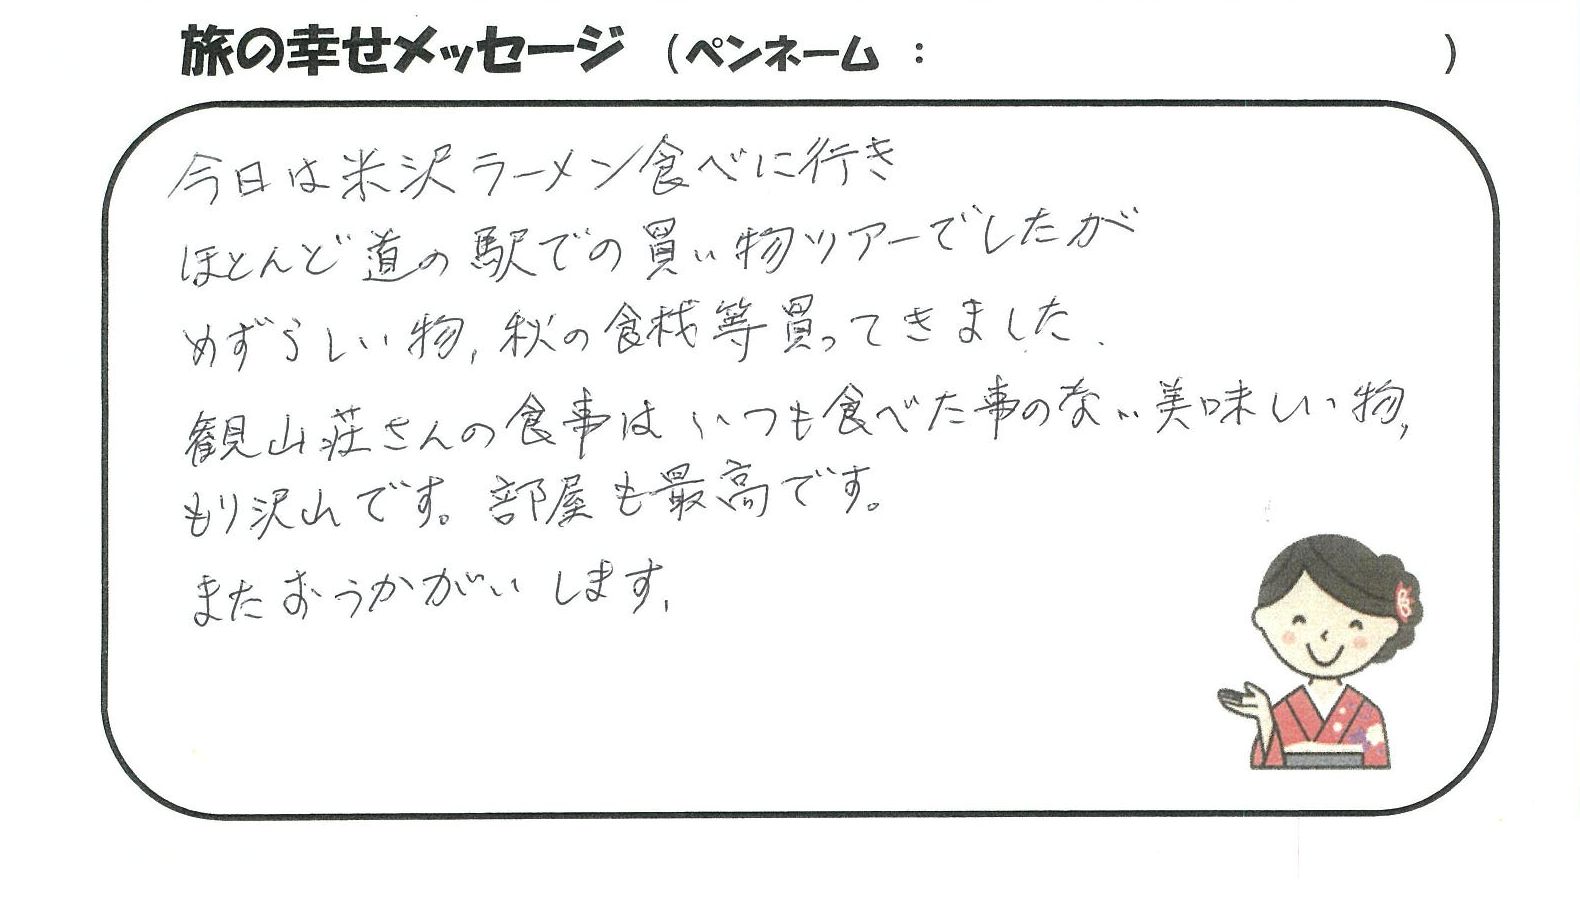 旅の幸せメッセージ （ペンネーム ： ）
今日は米沢ラーメン食べに行き
ほとんど道の駅での買い物ツアーでしたが
めずらしい物、秋の食材等買ってきました.
観山荘さんの食事はいつも食べた事のない美味しい物,
もり沢山です。部屋も最高です。
またおうかがいします,